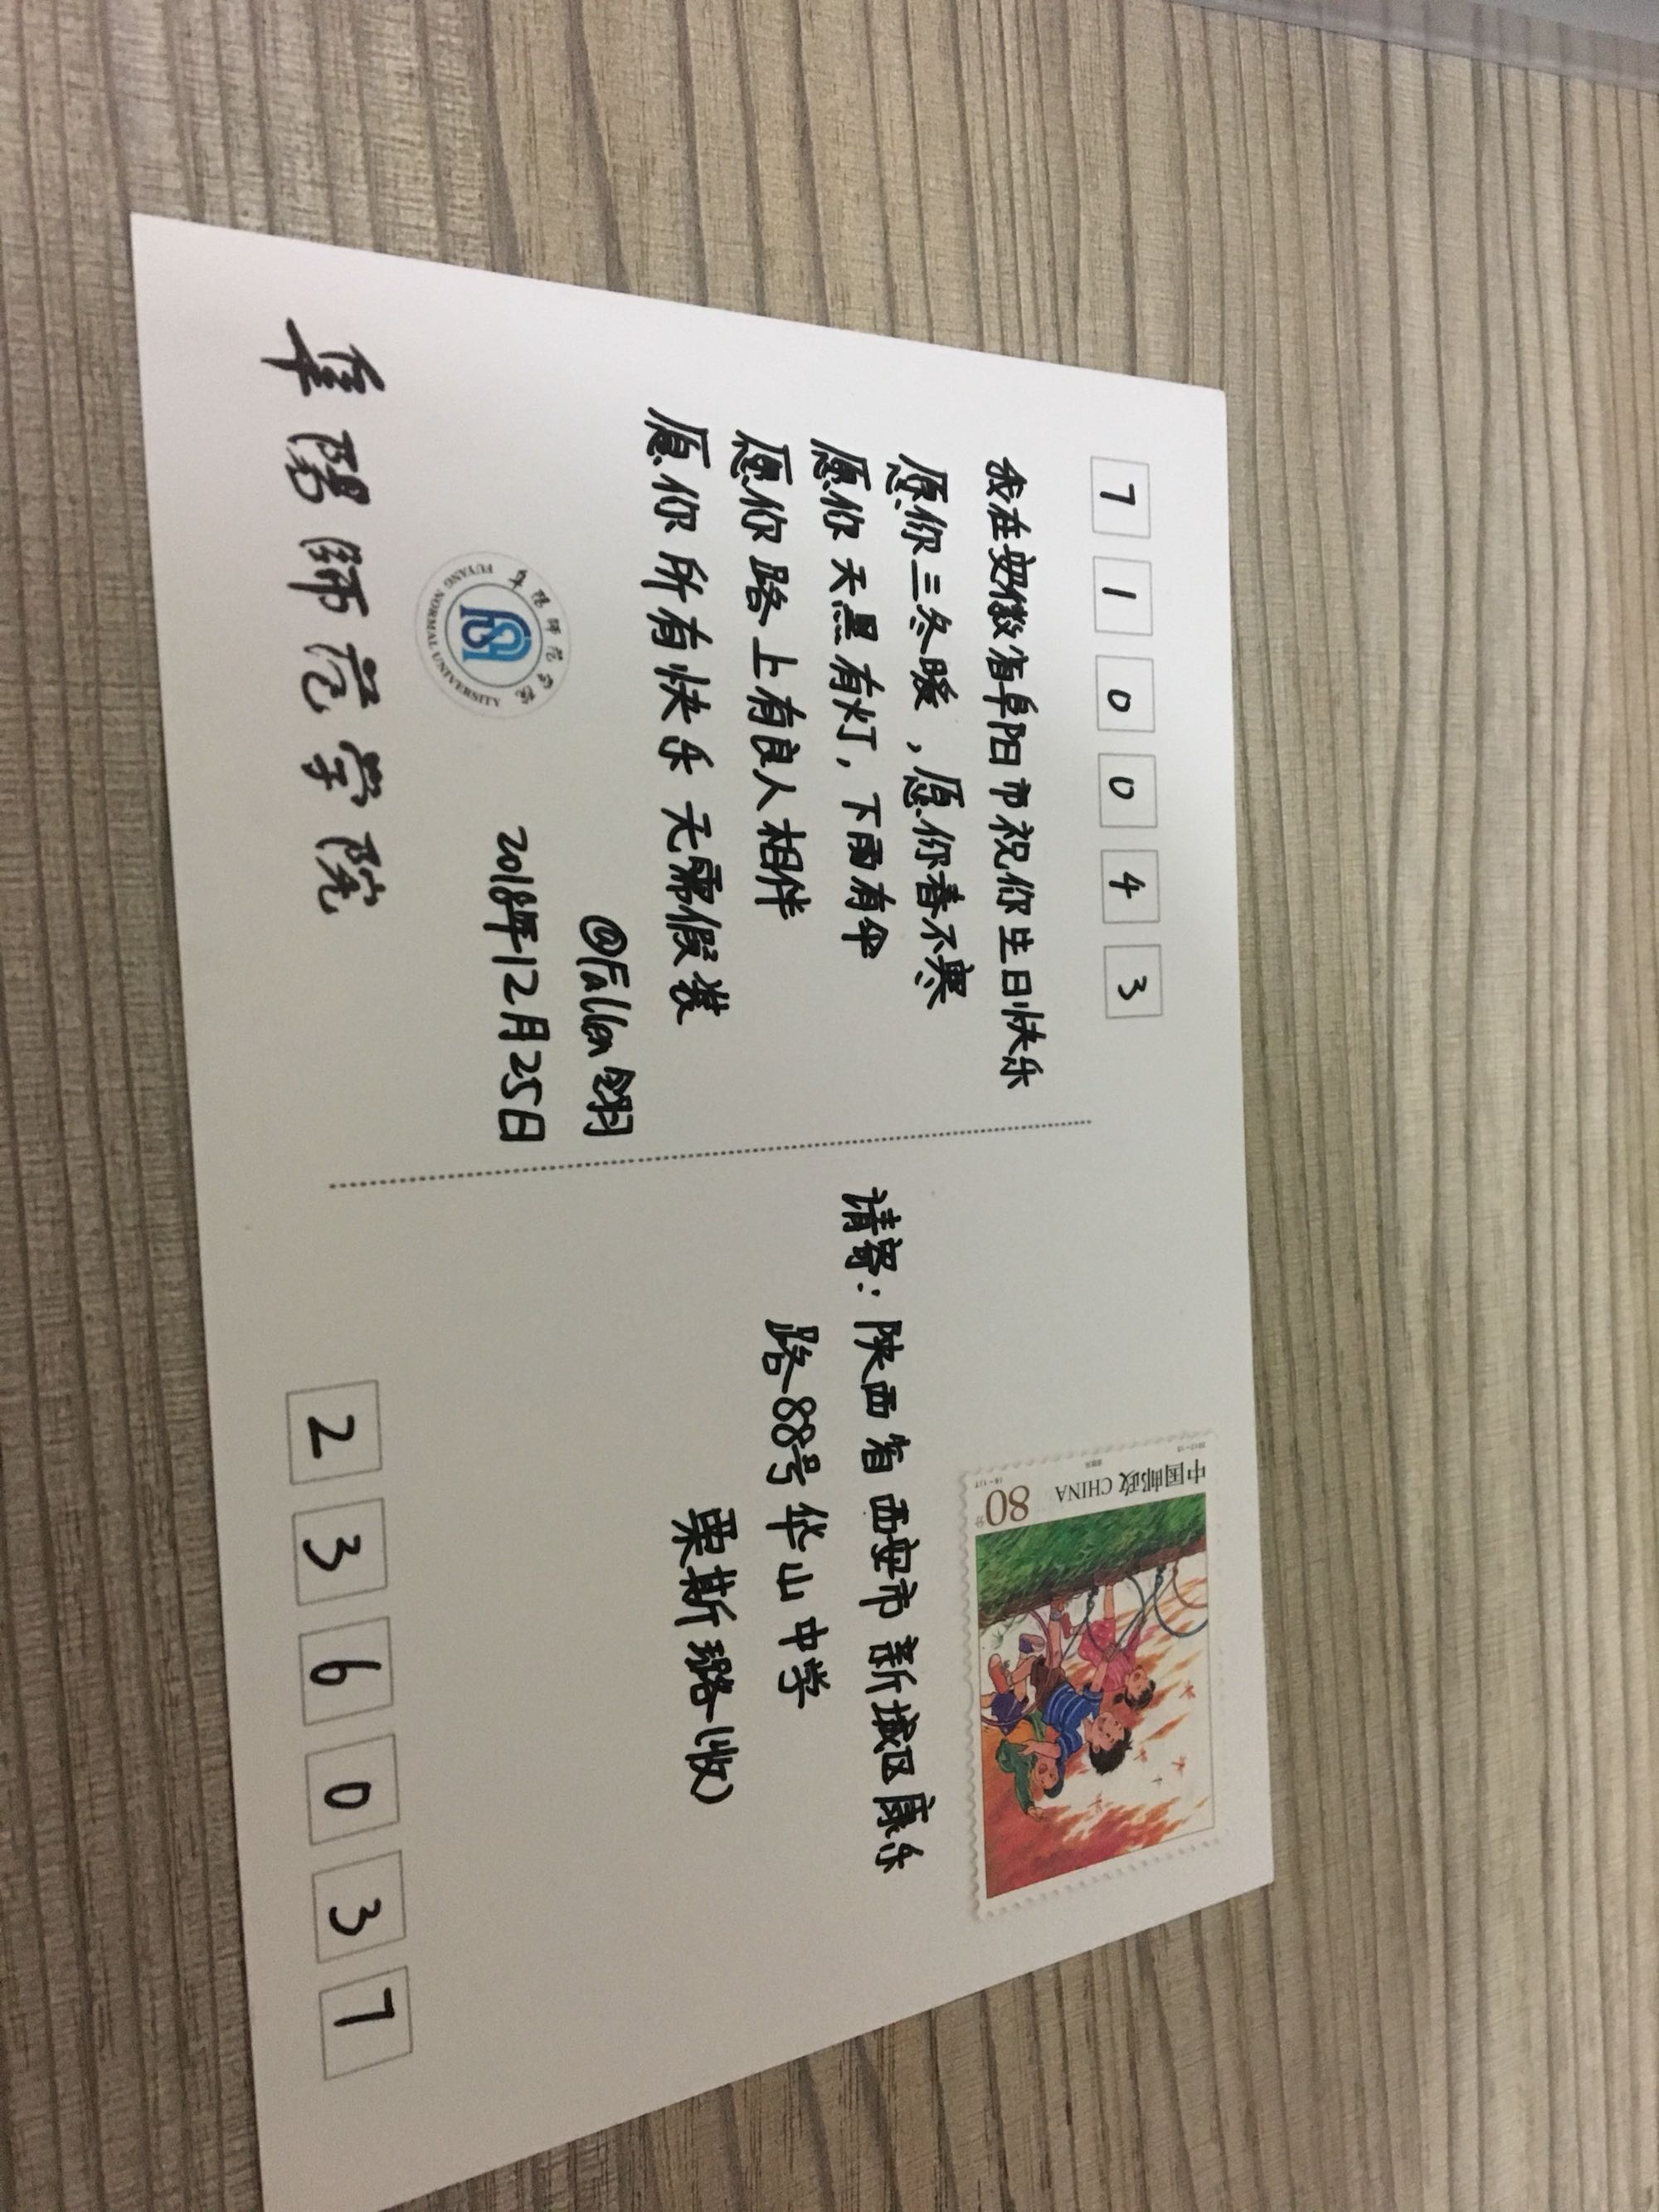 710043
我在安徽省阜阳市祝你生日快乐
愿你三冬暖，愿你春不寒
愿你天黑有灯，下雨有伞
愿你路上有良人相伴
愿你所有快乐 无需假装
@Fallen 翎羽
2018年12月25日
阜陽師范学院
FUYANG NORMAL UNIVERSITY
中国邮政 CHINA
80分
请寄：陕西省西安市新城区康乐
路88号华山中学
栗斯璐(收)
236037